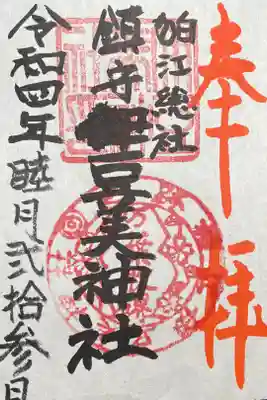 奉拝
狛江總社
鎮守伊豆美神社
令和四年睦月弐拾参日